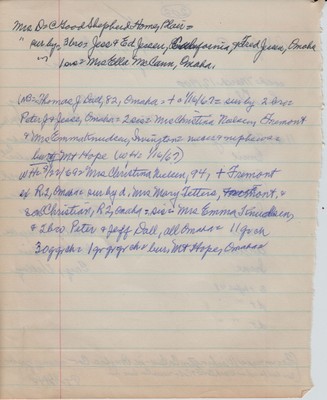 Mrs D=C Good Shepherd Home, Blair=
" sur by. 3 bro= Jess & Ed Jessen, California, & Fred Jessen, Omaha
" 1 sis= Mrs Ella McCann, Omaha.
WH= Thomas J. Dall, 82, Omaha = + 1/16/67= sur by 2 bro=
Peter J & Jess, Omaha= 2 sis= Mrs Christina Nielsen, Fremont
& Mrs Emma Knudsen, Irvington nieces & nephews=
bur Mt Hope (WH= 1/16/67)
WH= Mrs Christina Nielsen, 94, + Fremont
of R2, Omaha= sur by d, Mrs Mary Tetters, Fremont, &
Christian, R2, Omaha= sis= Mrs Emma Knudsen,
& 2 bro Peter & Jeff Dall, all Omaha= 11 gr ch
30 ggrch= 1 gr gr gr ch= buri Mt Hope, Omaha=